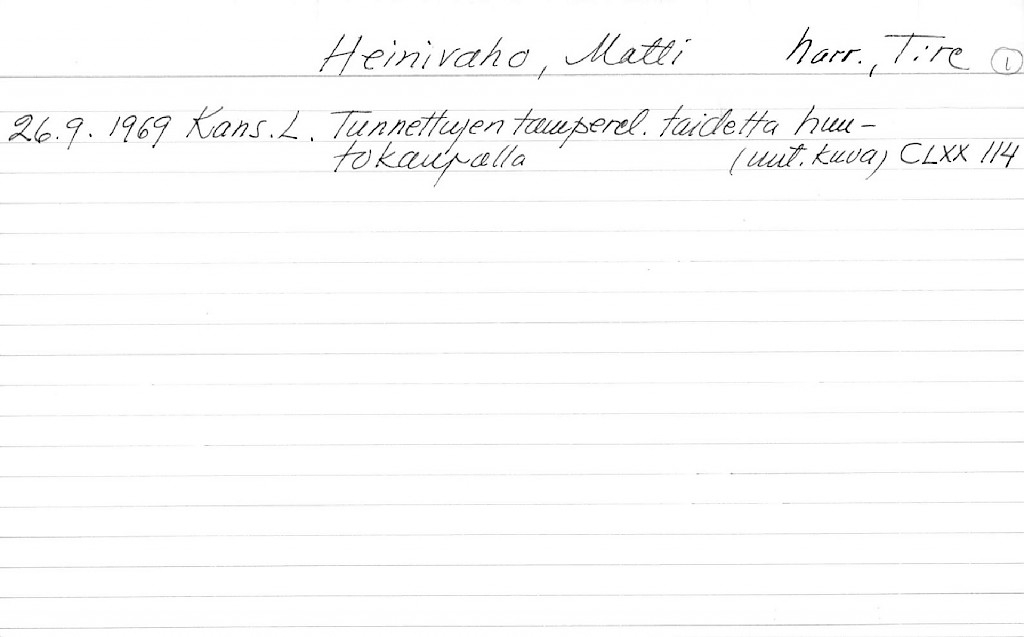 Heinivaho, Matti harr., T:re 1
26.9. 1969 Kans. L. Tunnettujen tamperel. taidetta huu-
tokaupalla (uut. kuva) CLXX 114